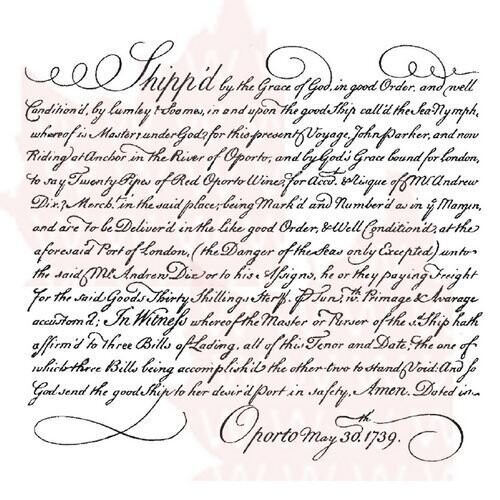 Shipp'd by the Grace of God, in good Order, and well
Condition'd, by Lumley & Soomes, in and upon the good Ship call'd the Sea-Nymph,
whereof is Master; under God, for this present Voyage, John Parker, and now
Riding at Anchor in the River of Oporto; and by God's Grace bound for London,
to say Twenty Pipes of Red Oporto Wine, for Acct. & Risque of Mr. Andrew
Dix, Mercht. in the said place; being Mark'd and Number'd as in ye Margin,
and are to be Deliver'd in the Like good Order, & Well Condition'd; at the
aforesaid Port of London, (the Danger of the Seas only Excepted) unto
the said Mr. Andrew Dix or to his Assigns, he or they paying Freight
for the said Goods Thirty Shillings Sterg. p Tun, wth. Primage & Avarage
accustom'd; In Witness whereof the Master or Purser of the sd. Ship hath
affirm'd to three Bills of Lading, all of this Tenor and Date; the one of
which three Bills being accomplish'd the other two to stand Void. And so
God send the good Ship to her desir'd Port in safety, Amen. Dated in
Oporto May 30th. 1739.